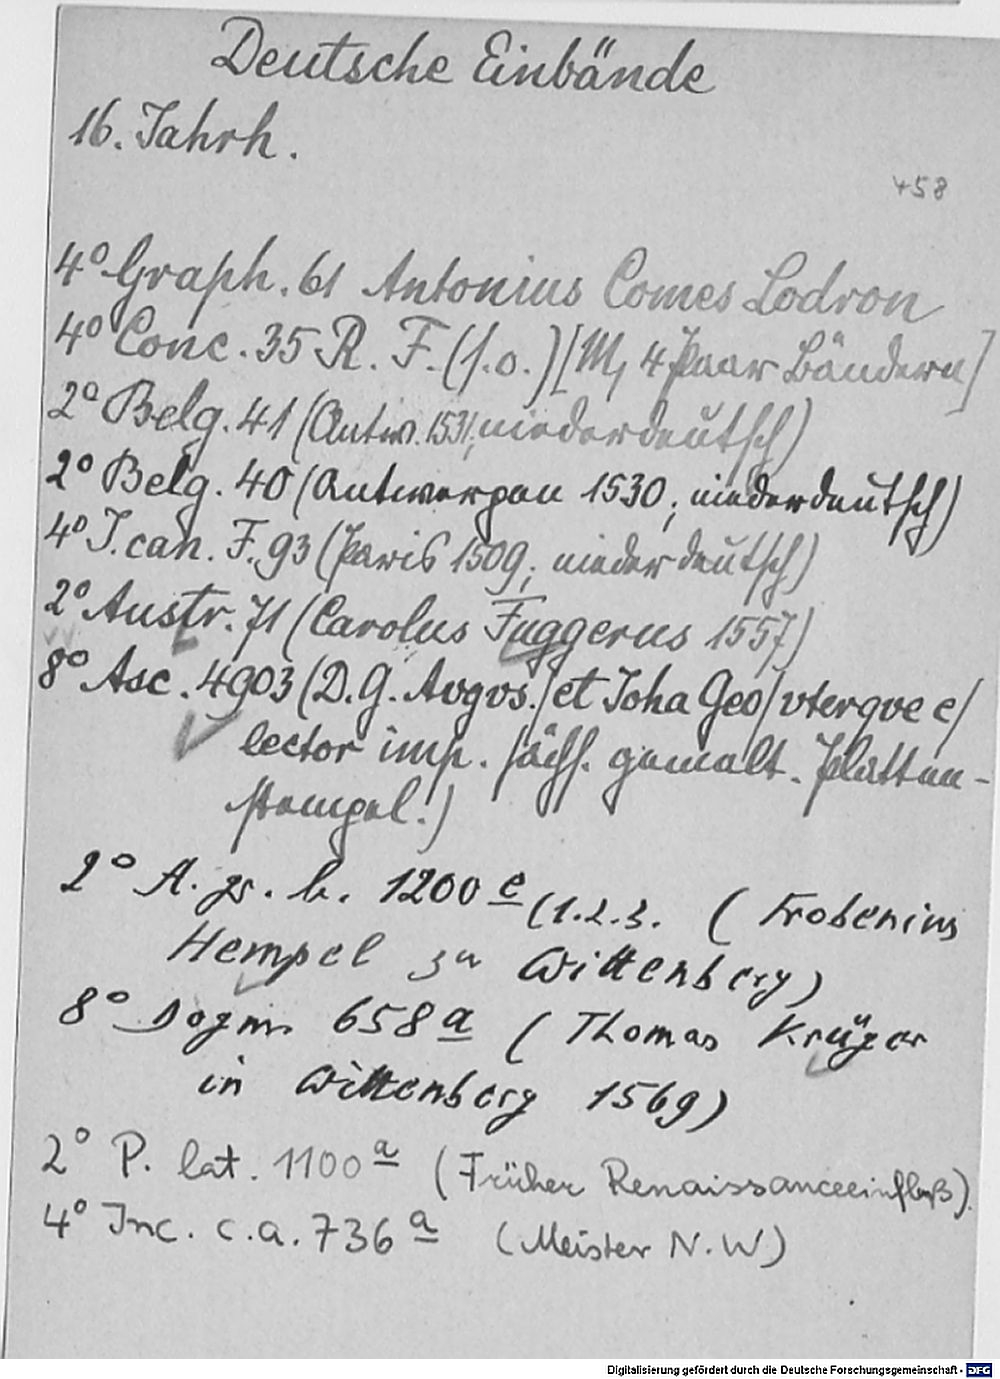 Deutsche Einbände
16. Jahrh.
458
4° Graph. 61 Antonius Comes Lodron
4° Conc. 35 R. F. (s.o.) [M, 4 Paar Bändern]
2° Belg. 41 (Antw. 1531; niederdeutsch)
2° Belg. 40 (Antwerpen 1530; niederdeutsch)
4° J. can. F. 93 (Paris 1509; niederdeutsch)
2° Austr. 71 (Carolus Fuggerus 1557)
8° Asc. 4903 (D. G. Avgvs./et Joha Geo/vterqve e/
lector imp. sächs. gemalt. Platten-
stempel.)
2° A. gr. b. 1200 e (1.2.3. (Frobenius
Hempel zu Wittenberg)
8° Dogm. 658 a (Thomas Krüger
in Wittenberg 1569)
2° P. lat. 1100 a (Früher Renaissanceeinfluß)
4° Inc. c. a. 736 a (Meister N. W)
Digitalisierung gefördert durch die Deutsche Forschungsgemeinschaft - DFG